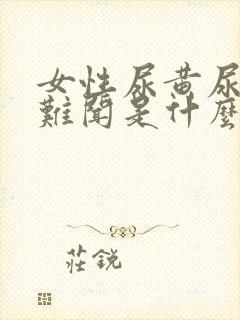 女性尿黄尿
難聞是什麼
莊銳